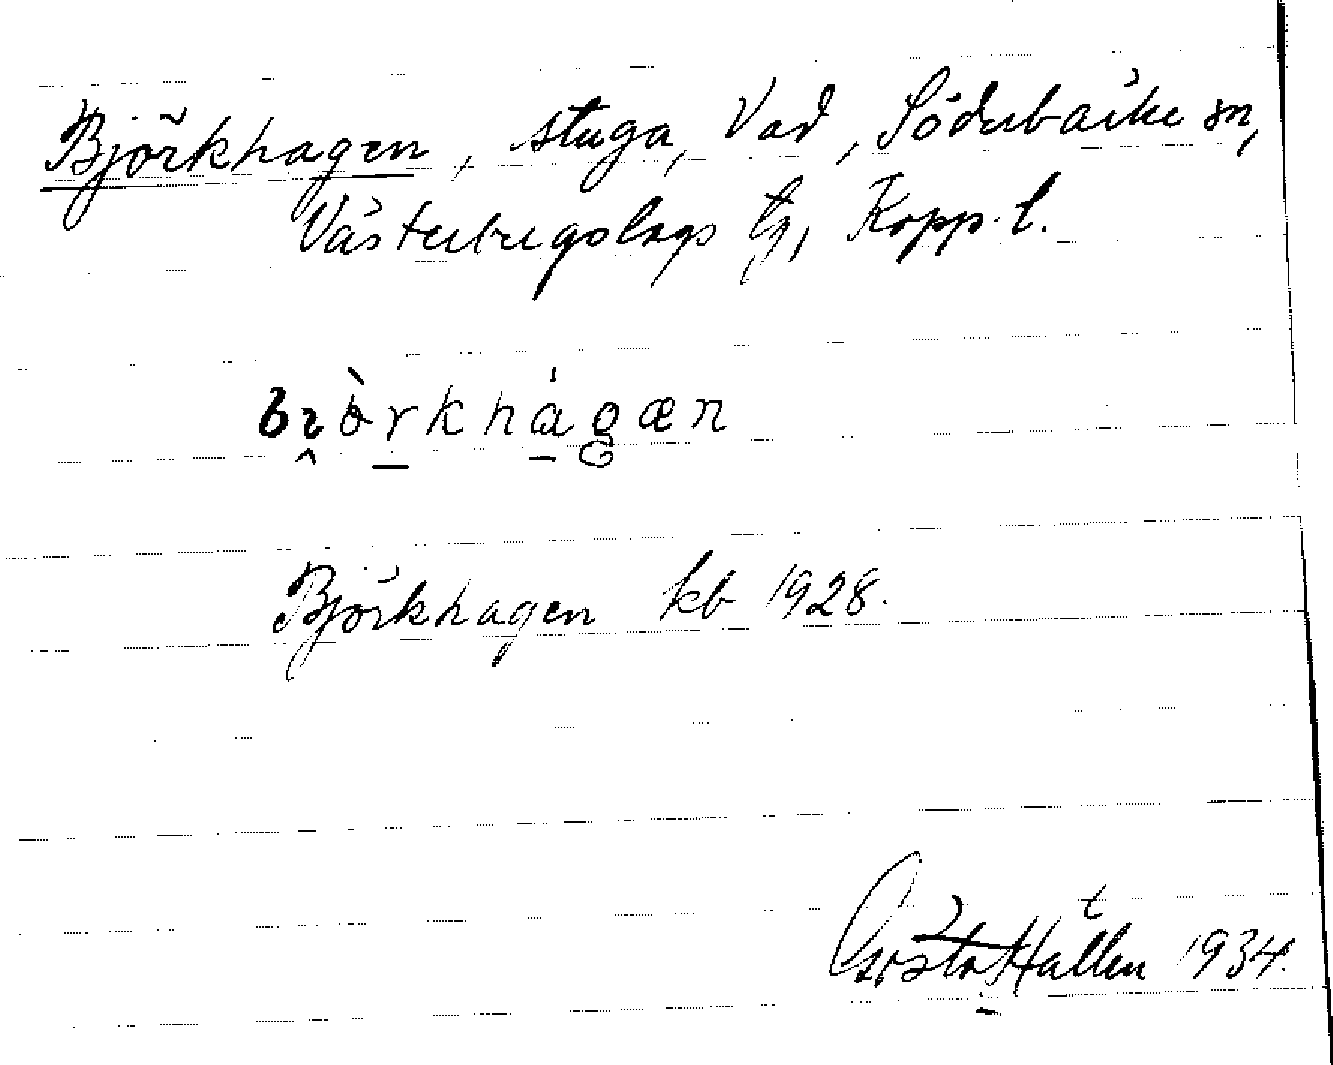 Björkhagen, stuga, Vad, Söderbärke sn,
Västerbergslags tg, Kopp. l.
Björkhagen kb 1928.
Gösta Hallén 1934.